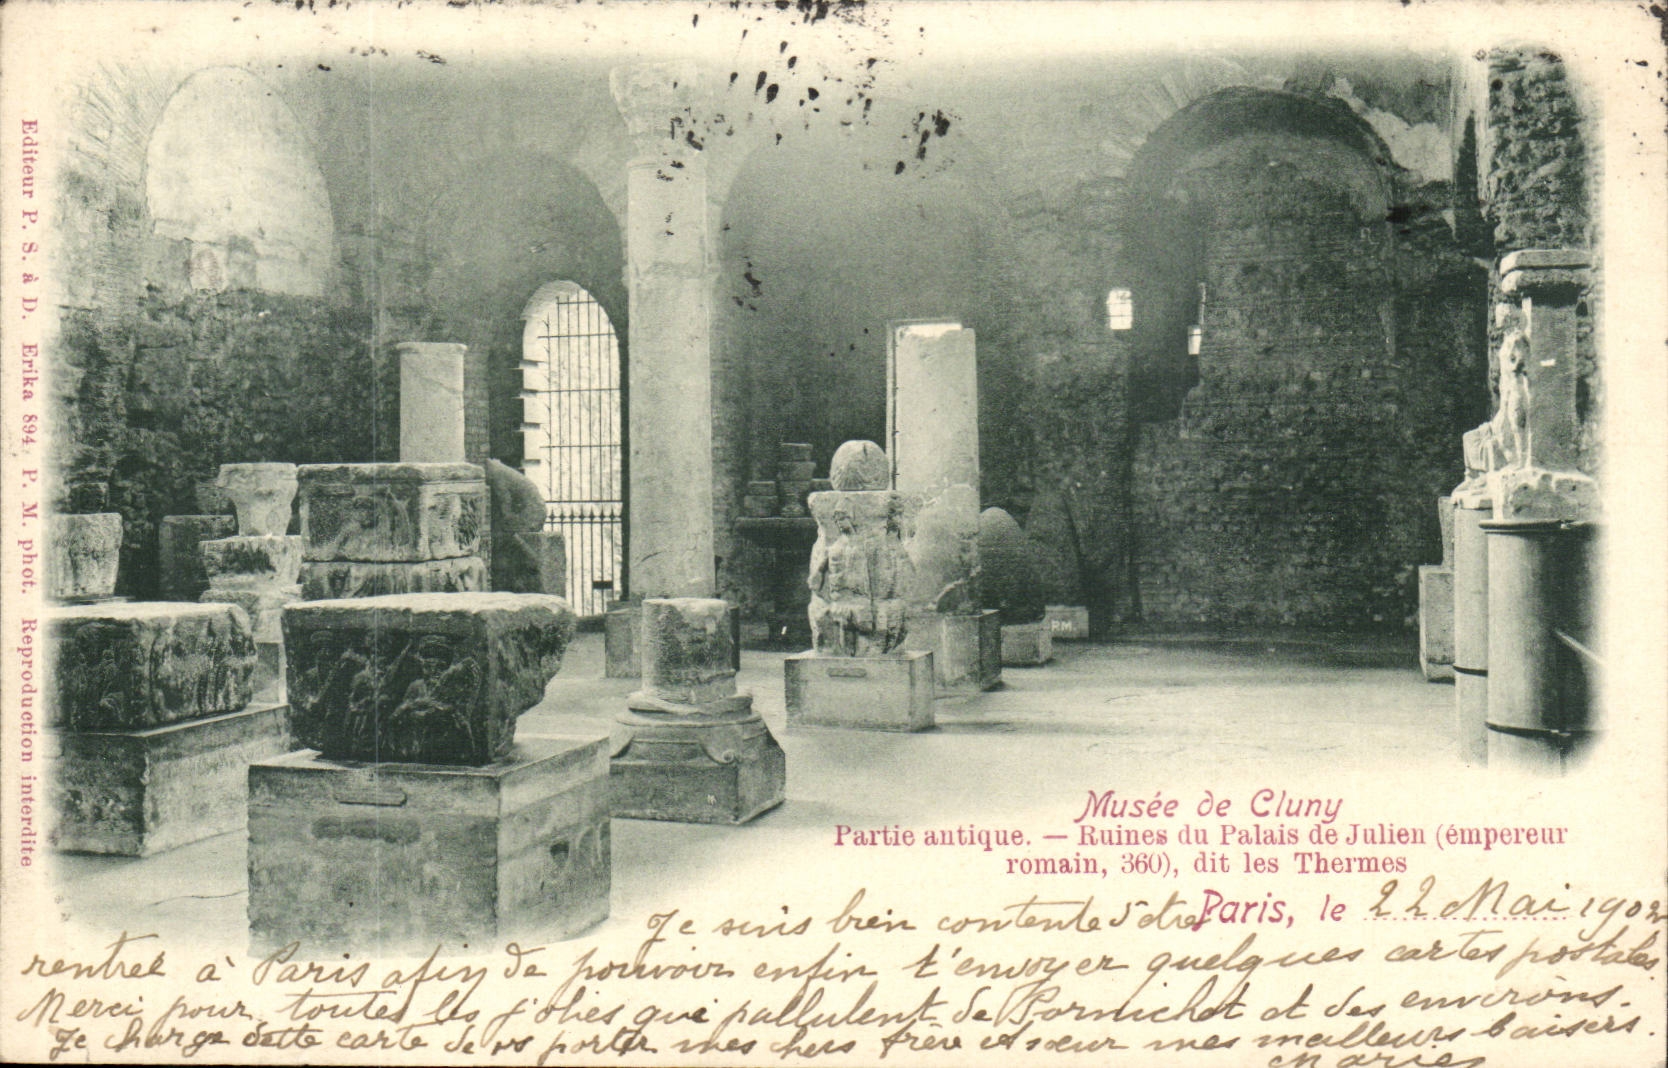 Editeur P. S. à D. Erika 894, P. M. phot. Reproduction interdite
P.M.
Musée de Cluny
Partie antique. — Ruines du Palais de Julien (émpereur
romain, 360), dit les Thermes
Paris, le 22 Mai 1902
Je suis bien contente d'être
rentrée à Paris afin de pouvoir enfin t'envoyer quelques cartes postales.
Merci pour toutes les jolies qui pallulent de Pornichet et des environs.
Je charge cette carte de vs porter mes chers frère et sœur mes meilleurs baisers.